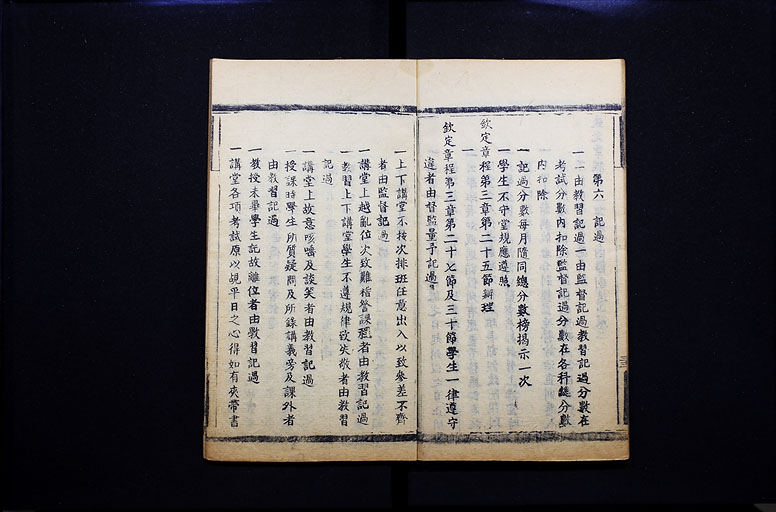 第六　記過
一一由教習記過一由監督記過教習記過分數在
考試分數內扣除監督記過分數在各科總分數
內扣除
一記過分數每月隨同總分數榜揭示一次
一學生不守堂規應遵照
欽定章程第三章第二十五節辦理
一
欽定章程第三章第二十七節及三十節學生一律遵守
違者由督監量予記過
一上下講堂不按次排班任意出入以致參差不齊
者由監督記過
一講堂上越亂位次致難稽警課程者由教習記過
一教習上下講堂學生不遵規律致失敬者由教習
記過
一講堂上故意咳嗽及談笑者由教習記過
一授課時學生所質疑問及所錄講義旁及課外者
由教習記過
一教授未畢學生託故離位者由教習記過
一講堂各項考試原以覘平日之心得如有夾帶書